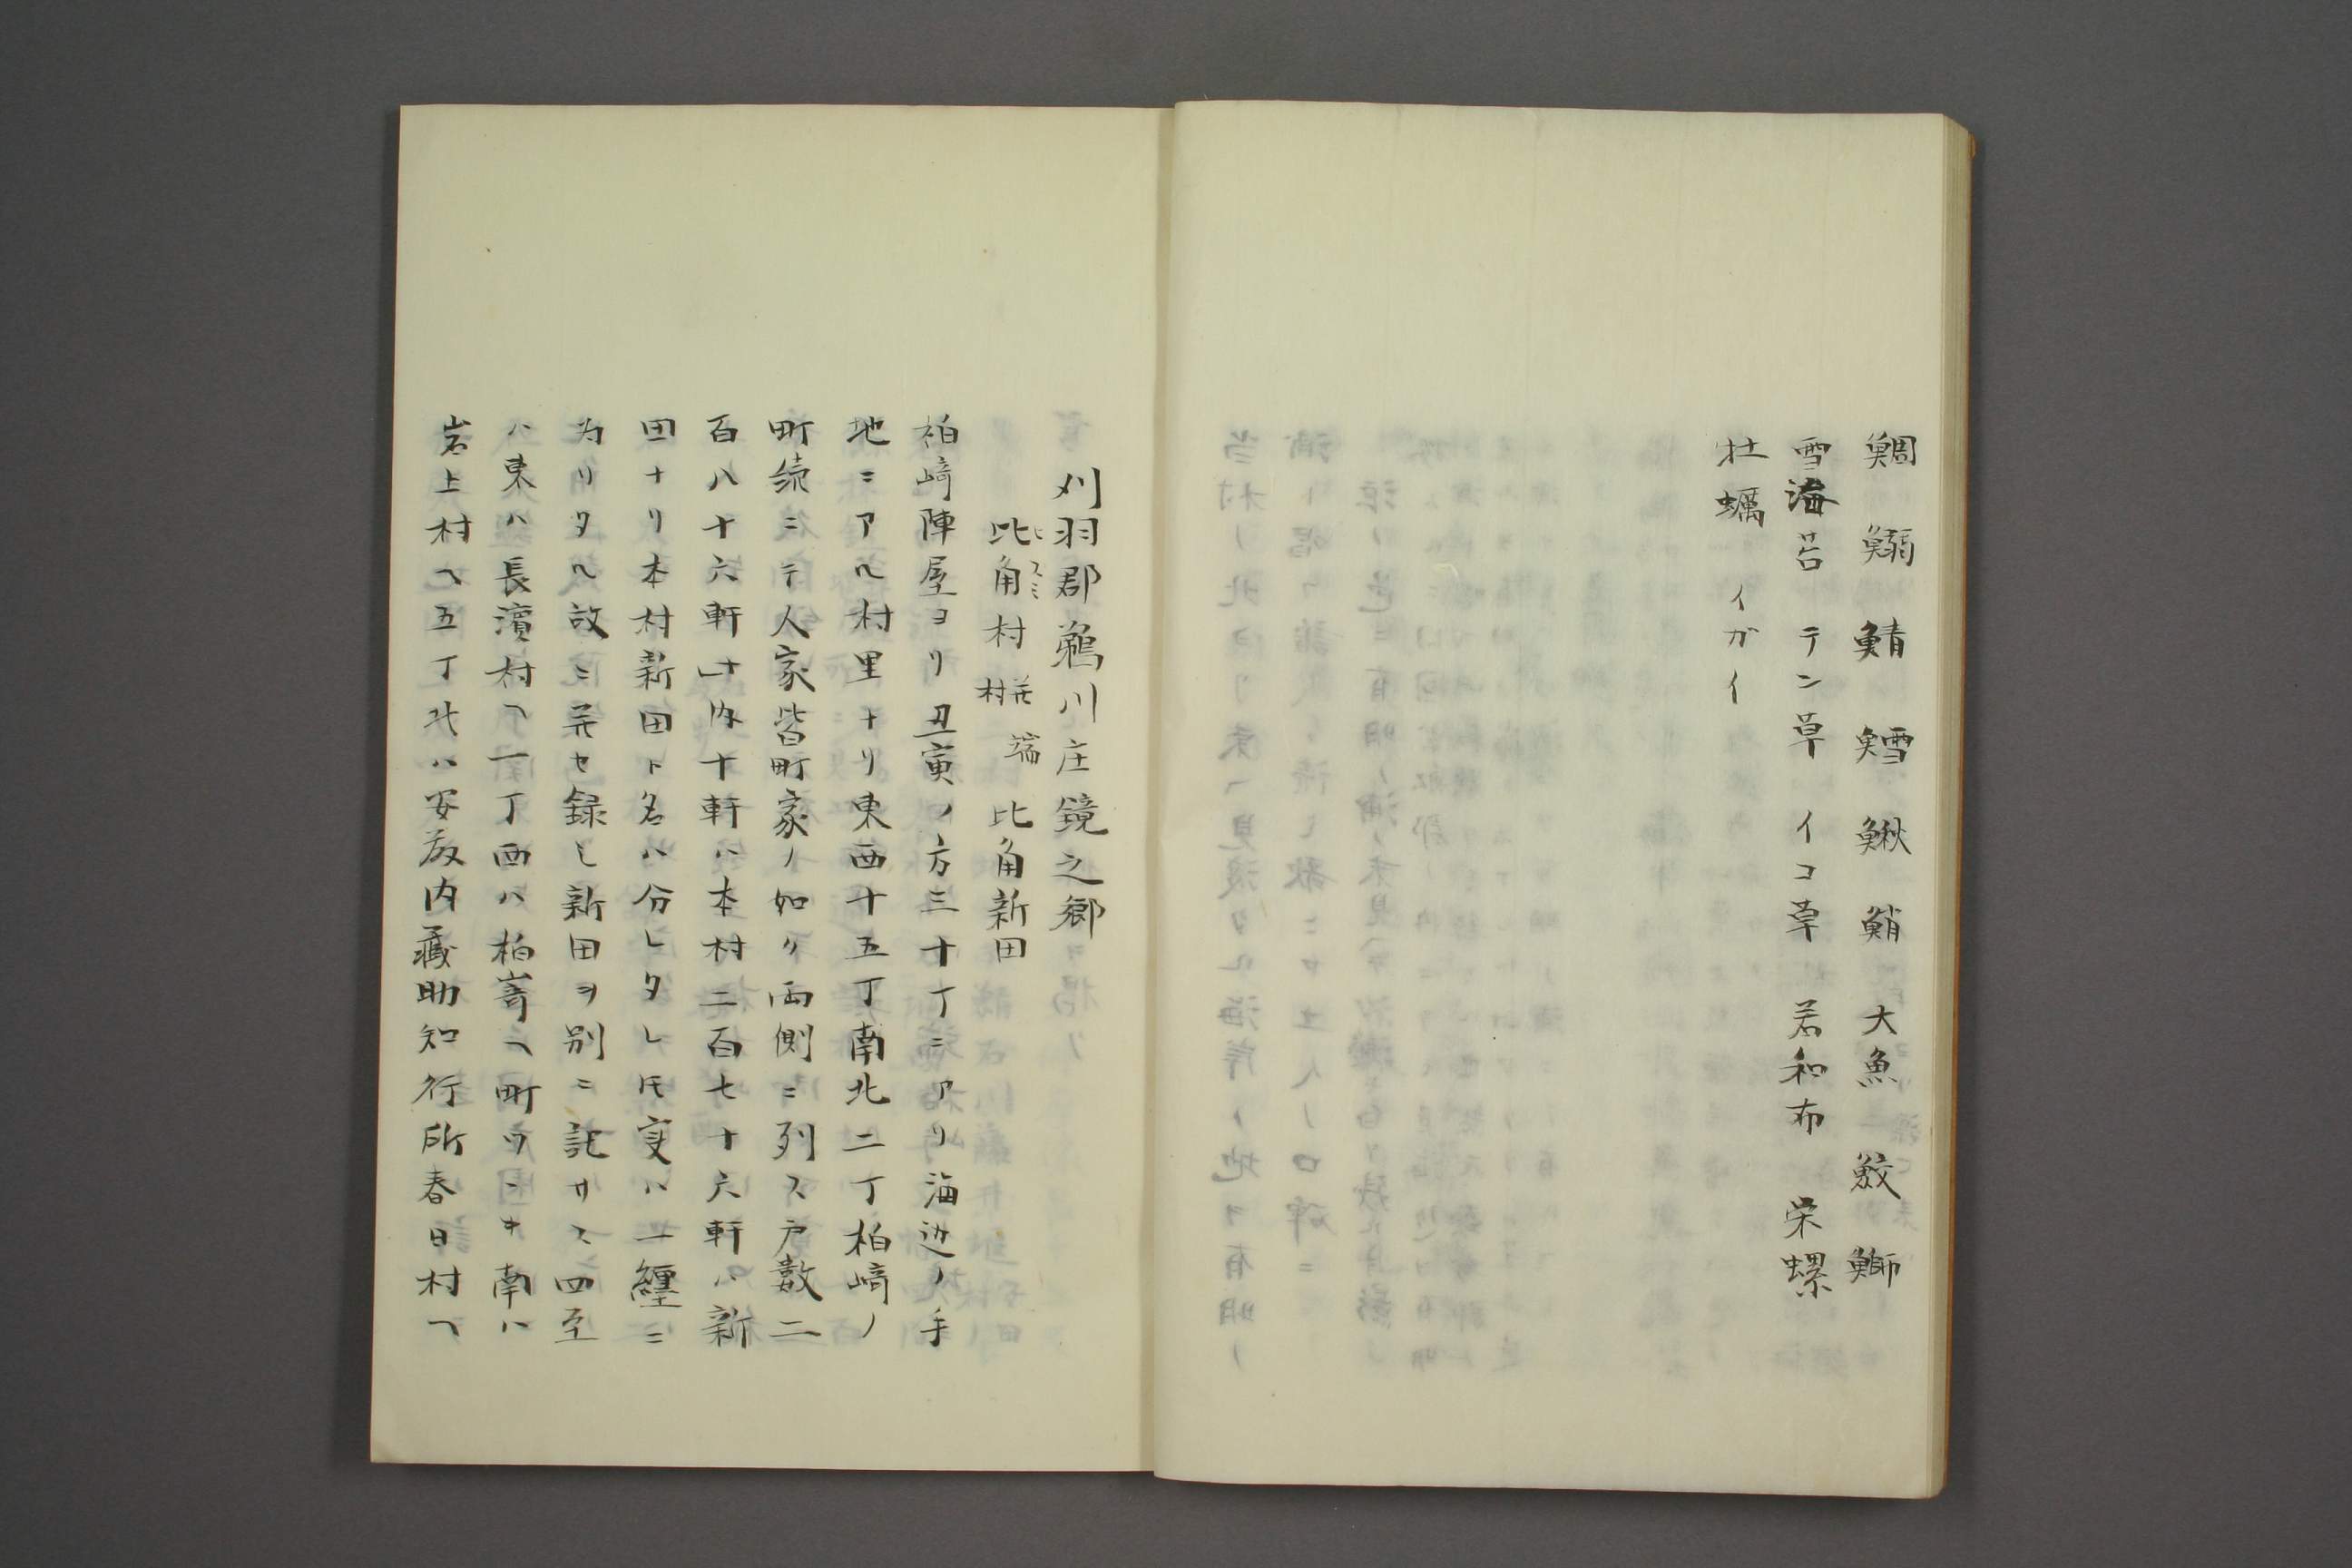 鯛 鰯 鯖 鱈 鰍 鮹 大魚 鮫 鰤
雪海苔 テン草 イコ草 若和布 栄螺
牡蠣 イガイ
刈羽郡鵜川庄鏡之郷
比角村 枝村 端 比角新田
ヒ スミ
柏崎陣屋ヨリ丑寅ノ方三十丁ニアリ海辺ノ手
地ニアル村里ナリ東西十五丁南北二丁柏崎ノ
町続ニテ人家皆町家ノ如ク両側ニ列ス戸数二
百八十六軒内十軒ハ本村二百七十六軒ハ新
田ナリ本村新田ト名ハ分レタレ𪜈実ハ一纏ニ
為リタル故ニ並セ録シ新田ヲ別ニ記サス四至
ハ東ハ長濱村ヘ一丁西ハ柏嵜ヘ町ツヽキ南ハ
岩上村ヘ五丁北ハ安藤内蔵助知行所春日村ヘ